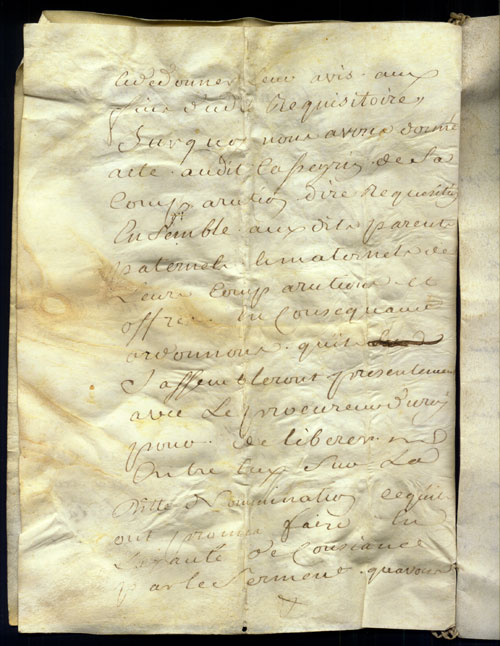 donner leur avis aux
fins dudit Requisitoire,
Surquoy nous avons donné
acte audit de Sa
Comparution dire Requisition
Ensemble aux dits parents
paternels & maternels de
Leurs Comparutions et
offres En Consequance
ordonnons quils
S'assembleront presentement
avec Le procureur du roy
pour deliberer
Entre Eux Sur La
ditte Nomination cequils
ont promis faire En
de Consiance
par le Serment quavons